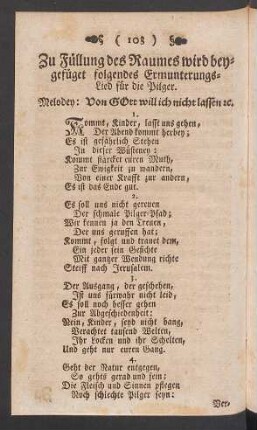 ( 103 )
Zu Füllung des Raumes wird bey-
gefüget folgendes Ermunterungs-
Lied für die Pilger.
Melodey: Von GOtt will ich nicht lassen ꝛc.
1.
Kommt, Kinder, lasst uns gehen,
Der Abend kommt herbey;
Es ist gefährlich Stehen
In dieser Wüsteney:
Kommt stärcket euren Muth,
Zur Ewigkeit zu wandern,
Von einer Krafft zur andern,
Es ist das Ende gut.
2.
Es soll uns nicht gereuen
Der schmale Pilger-Pfad;
Wir kennen ja den Treuen,
Der uns geruffen hat;
Kommt, folgt und trauet dem,
Ein jeder sein Gesichte
Mit gantzer Wendung richte
Steiff nach Jerusalem.
3.
Der Ausgang, der geschehen,
Ist uns fürwahr nicht leid,
Es soll noch besser gehen
Zur Abgeschiedenheit:
Nein, Kinder, seyd nicht bang,
Verachtet tausend Welten,
Ihr Locken und ihr Schelten,
Und geht nur euren Gang.
4.
Geht der Natur entgegen,
So gehts gerad und fein:
Die Fleisch und Sinnen pflegen
Noch schlechte Pilger seyn:
Ver-